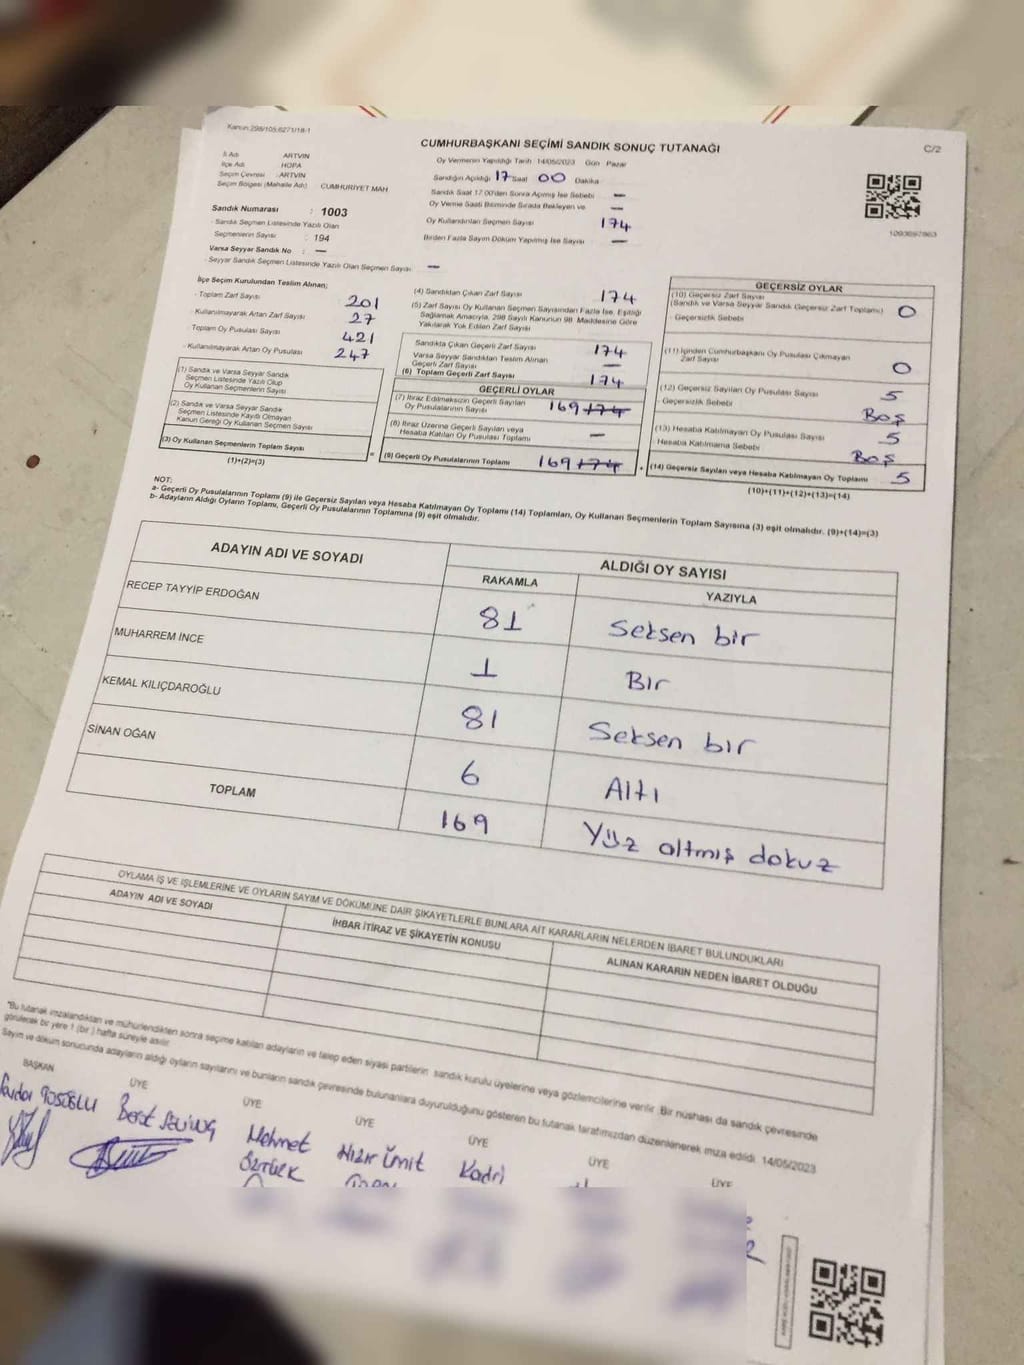 Kanun:298/105;6271/18-1
CUMHURBAŞKANI SEÇİMİ SANDIK SONUÇ TUTANAĞI
C/2
İl Adı ARTVİN
İlçe Adı HOPA
Seçim Çevresi : ARTVİN
Seçim Bölgesi (Mahalle Adı) CUMHURİYET MAH
Oy Vermenin Yapıldığı Tarih 14/05/2023 Gün Pazar
Sandığın Açıldığı 17 Saat 00 Dakika
Sandık Saat 17.00'den Sonra Açılmış İse Sebebi —
Oy Verme Saati Bitiminde Sırada Bekleyen ve —
Oy Kullandırılan Seçmen Sayısı 174
Birden Fazla Sayım Döküm Yapılmış İse Sayısı —
1093697863
Sandık Numarası : 1003
- Sandık Seçmen Listesinde Yazılı Olan
Seçmenlerin Sayısı : 194
Varsa Seyyar Sandık No : —
- Seyyar Sandık Seçmen Listesinde Yazılı Olan Seçmen Sayısı —
İlçe Seçim Kurulundan Teslim Alınan;
- Toplam Zarf Sayısı 201
- Kullanılmayarak Artan Zarf Sayısı 27
- Toplam Oy Pusulası Sayısı 421
- Kullanılmayarak Artan Oy Pusulası 247
(1) Sandık ve Varsa Seyyar Sandık
Seçmen Listesinde Yazılı Olup
Oy Kullanan Seçmenlerin Sayısı
(2) Sandık ve Varsa Seyyar Sandık
Seçmen Listesinde Kayıtlı Olmayan
Kanun Gereği Oy Kullanan Seçmen Sayısı
(3) Oy Kullanan Seçmenlerin Toplam Sayısı
(1)+(2)=(3)
(4) Sandıktan Çıkan Zarf Sayısı 174
(5) Zarf Sayısı Oy Kullanan Seçmen Sayısından Fazla İse, Eşitliği
Sağlamak Amacıyla, 298 Sayılı Kanunun 98. Maddesine Göre
Yakılarak Yok Edilen Zarf Sayısı
Sandıkta Çıkan Geçerli Zarf Sayısı 174
Varsa Seyyar Sandıktan Teslim Alınan
Geçerli Zarf Sayısı —
(6) Toplam Geçerli Zarf Sayısı 174
GEÇERLİ OYLAR
(7) İtiraz Edilmeksizin Geçerli Sayılan
Oy Pusulalarının Sayısı 169 174
(8) İtiraz Üzerine Geçerli Sayılan veya
Hesaba Katılan Oy Pusulası Toplamı —
= (9) Geçerli Oy Pusulalarının Toplamı 169 174
GEÇERSİZ OYLAR
(10) Geçersiz Zarf Sayısı
(Sandık ve Varsa Seyyar Sandık Geçersiz Zarf Toplamı) 0
- Geçersizlik Sebebi
(11) İçinden Cumhurbaşkanı Oy Pusulası Çıkmayan
Zarf Sayısı 0
(12) Geçersiz Sayılan Oy Pusulası Sayısı 5
- Geçersizlik Sebebi Boş
(13) Hesaba Katılmayan Oy Pusulası Sayısı 5
Hesaba Katılmama Sebebi Boş
+ (14) Geçersiz Sayılan veya Hesaba Katılmayan Oy Toplamı 5
(10)+(11)+(12)+(13)=(14)
NOT:
a- Geçerli Oy Pusulalarının Toplamı (9) ile Geçersiz Sayılan veya Hesaba Katılmayan Oy Toplamı (14) Toplamları, Oy Kullanan Seçmenlerin Toplam Sayısına (3) eşit olmalıdır. (9)+(14)=(3)
b- Adayların Aldığı Oyların Toplamı, Geçerli Oy Pusulalarının Toplamına (9) eşit olmalıdır.
ADAYIN ADI VE SOYADI ALDIĞI OY SAYISI
RAKAMLA YAZIYLA
RECEP TAYYİP ERDOĞAN 81 Seksen bir
MUHARREM İNCE 1 Bir
KEMAL KILIÇDAROĞLU 81 Seksen bir
SİNAN OĞAN 6 Altı
TOPLAM 169 Yüz altmış dokuz
OYLAMA İŞ VE İŞLEMLERİNE VE OYLARIN SAYIM VE DÖKÜMÜNE DAİR ŞİKAYETLERLE BUNLARA AİT KARARLARIN NELERDEN İBARET BULUNDUKLARI
ADAYIN ADI VE SOYADI İHBAR İTİRAZ VE ŞİKAYETİN KONUSU ALINAN KARARIN NEDEN İBARET OLDUĞU
"Bu tutanak imzalandıktan ve mühürlendikten sonra seçime katılan adayların ve talep eden siyasi partilerin sandık kurulu üyelerine veya gözlemcilerine verilir. Bir nüshası da sandık çevresinde
görülecek bir yere 1 (bir) hafta süreyle asılır.
Sayım ve döküm sonucunda adayların aldığı oyların sayılarını ve bunların sandık çevresinde bulunanlara duyurulduğunu gösteren bu tutanak tarafımızdan düzenlenerek imza edildi. 14/05/2023
BAŞKAN ÜYE ÜYE ÜYE ÜYE ÜYE ÜYE
Mehmet
ÖZTÜRK
Hızır Ümit
Kadri